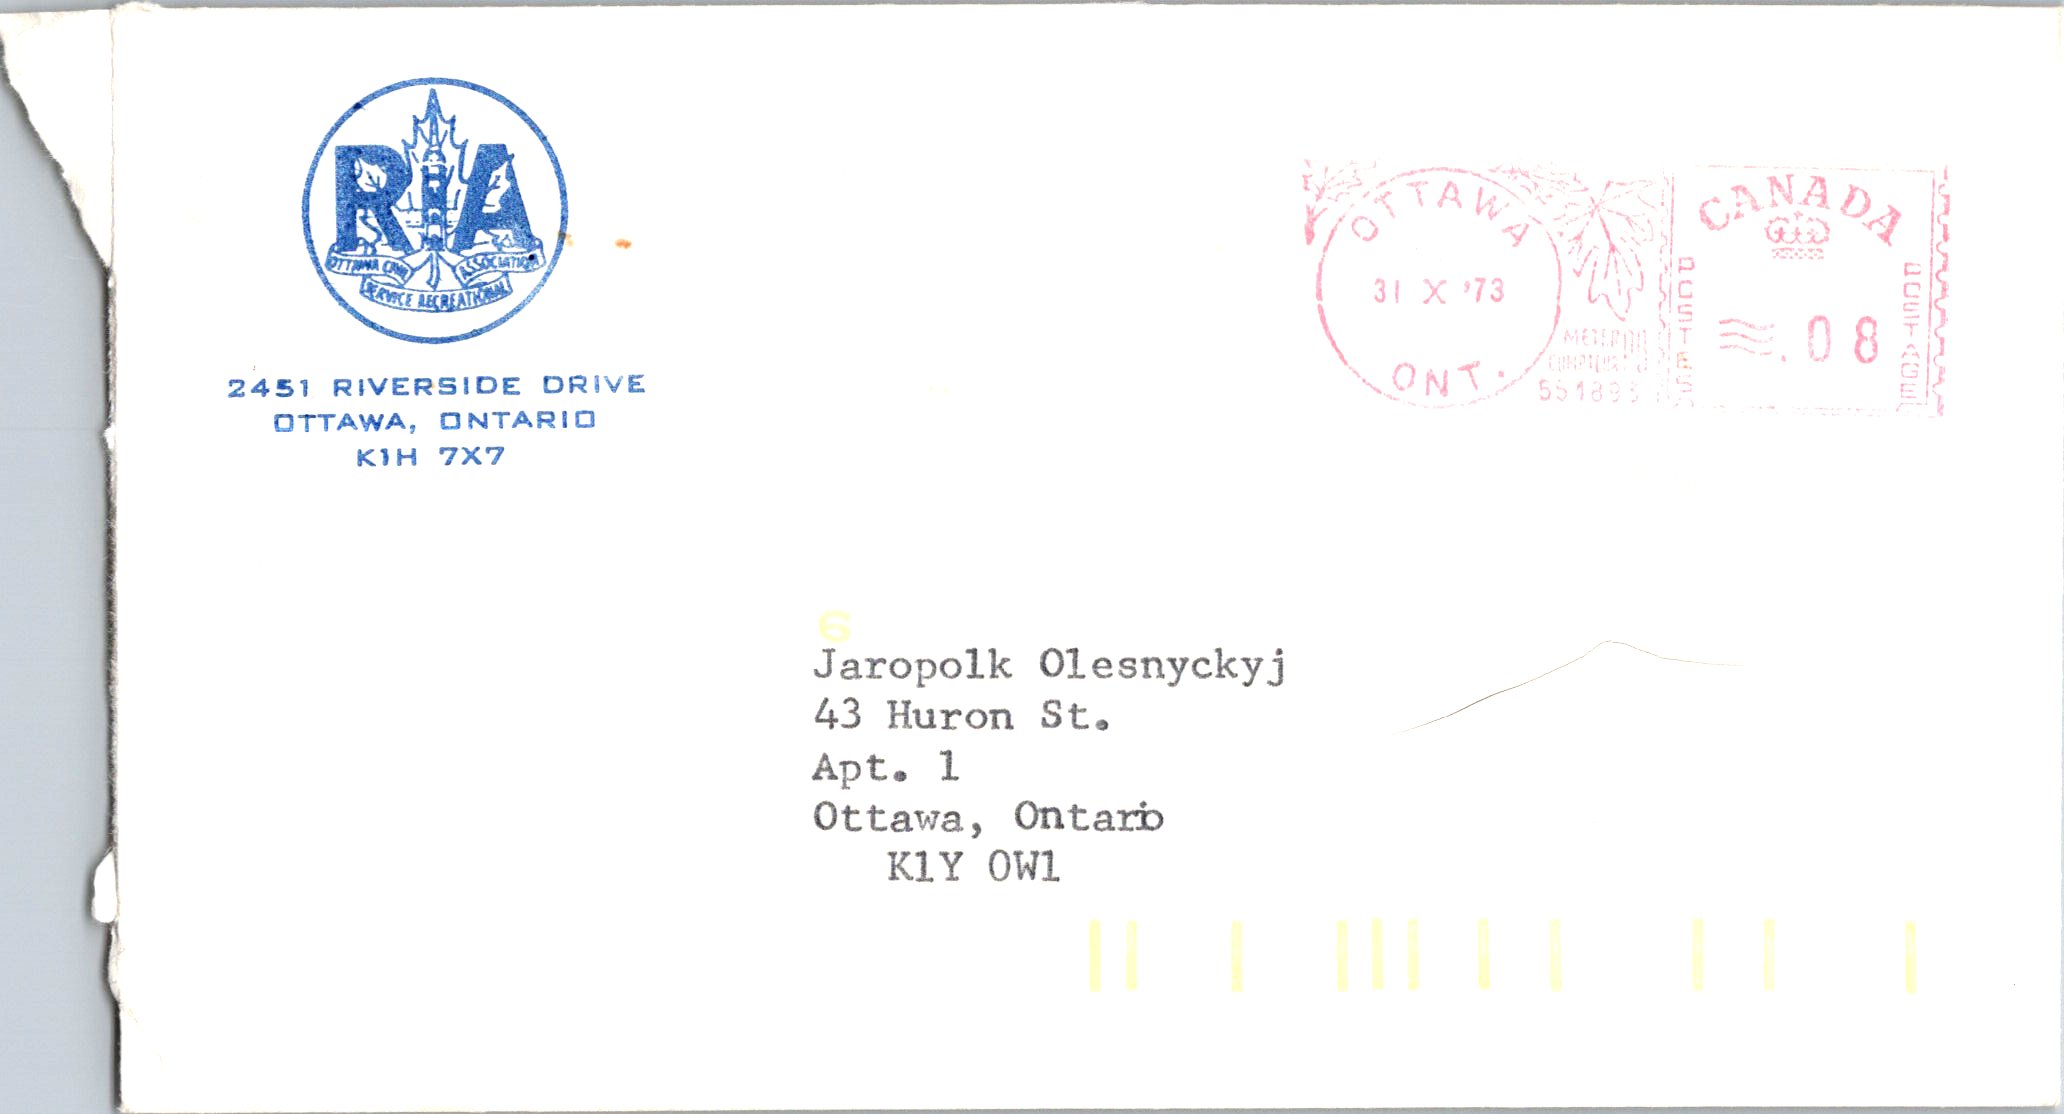 RA
OTTAWA CIVIL
SERVICE RECREATIONAL
ASSOCIATION
2451 RIVERSIDE DRIVE
OTTAWA, ONTARIO
K1H 7X7
OTTAWA
31 X '73
ONT.
CANADA
POSTES
.08
POSTAGE
6
Jaropolk Olesnyckyj
43 Huron St.
Apt. 1
Ottawa, Ontario
K1Y 0W1